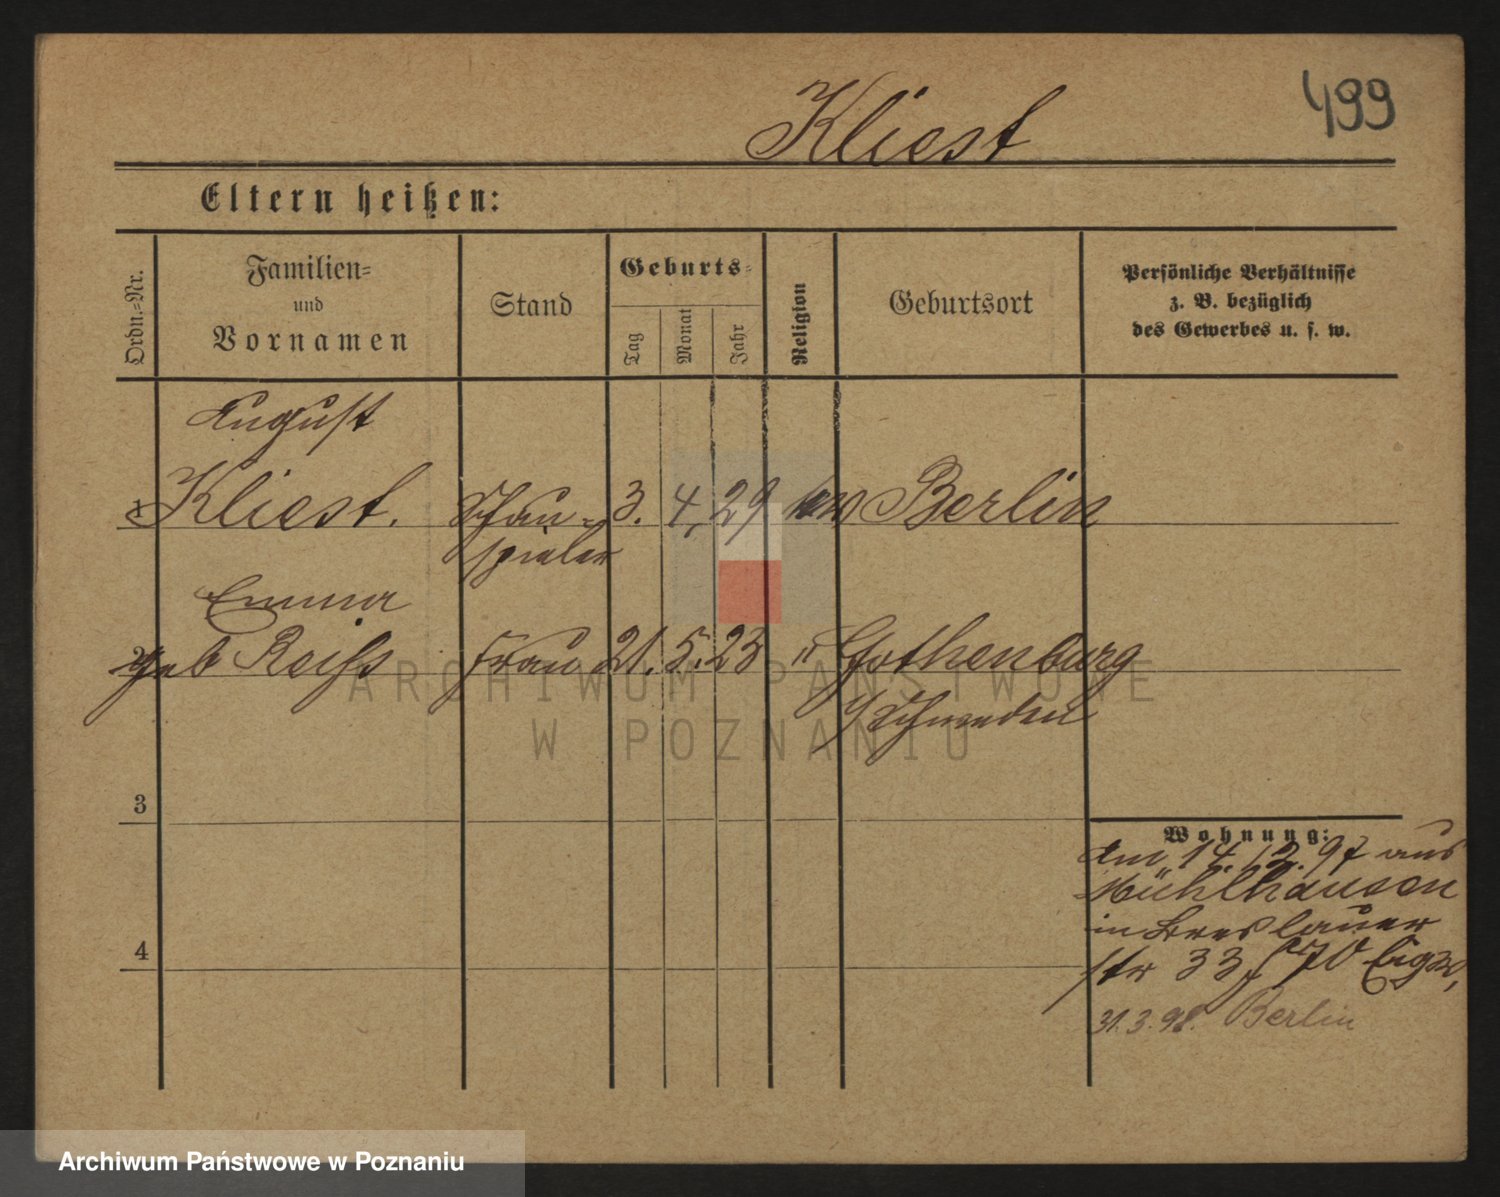 499
Kliest
Eltern heißen:
Ordn.=Nr.
Familien=
und
Vornamen
Stand
Geburts=
Tag
Monat
Jahr
Religion
Geburtsort
Persönliche Verhältnisse
z. B. bezüglich
des Gewerbes u. s. w.
August
1 Kliest. Schau= 3. 4. 29 Berlin
spieler
Emma
2 geb Reiss Frau 21. 5. 23 " Gothenburg
Schweden
3
4
Wohnung:
Am 14.12.97 aus
Mühlhausen
in Breslauer
str 33
31.3.98. Berlin
ARCHIWUM PAŃSTWOWE
W POZNANIU
Archiwum Państwowe w Poznaniu